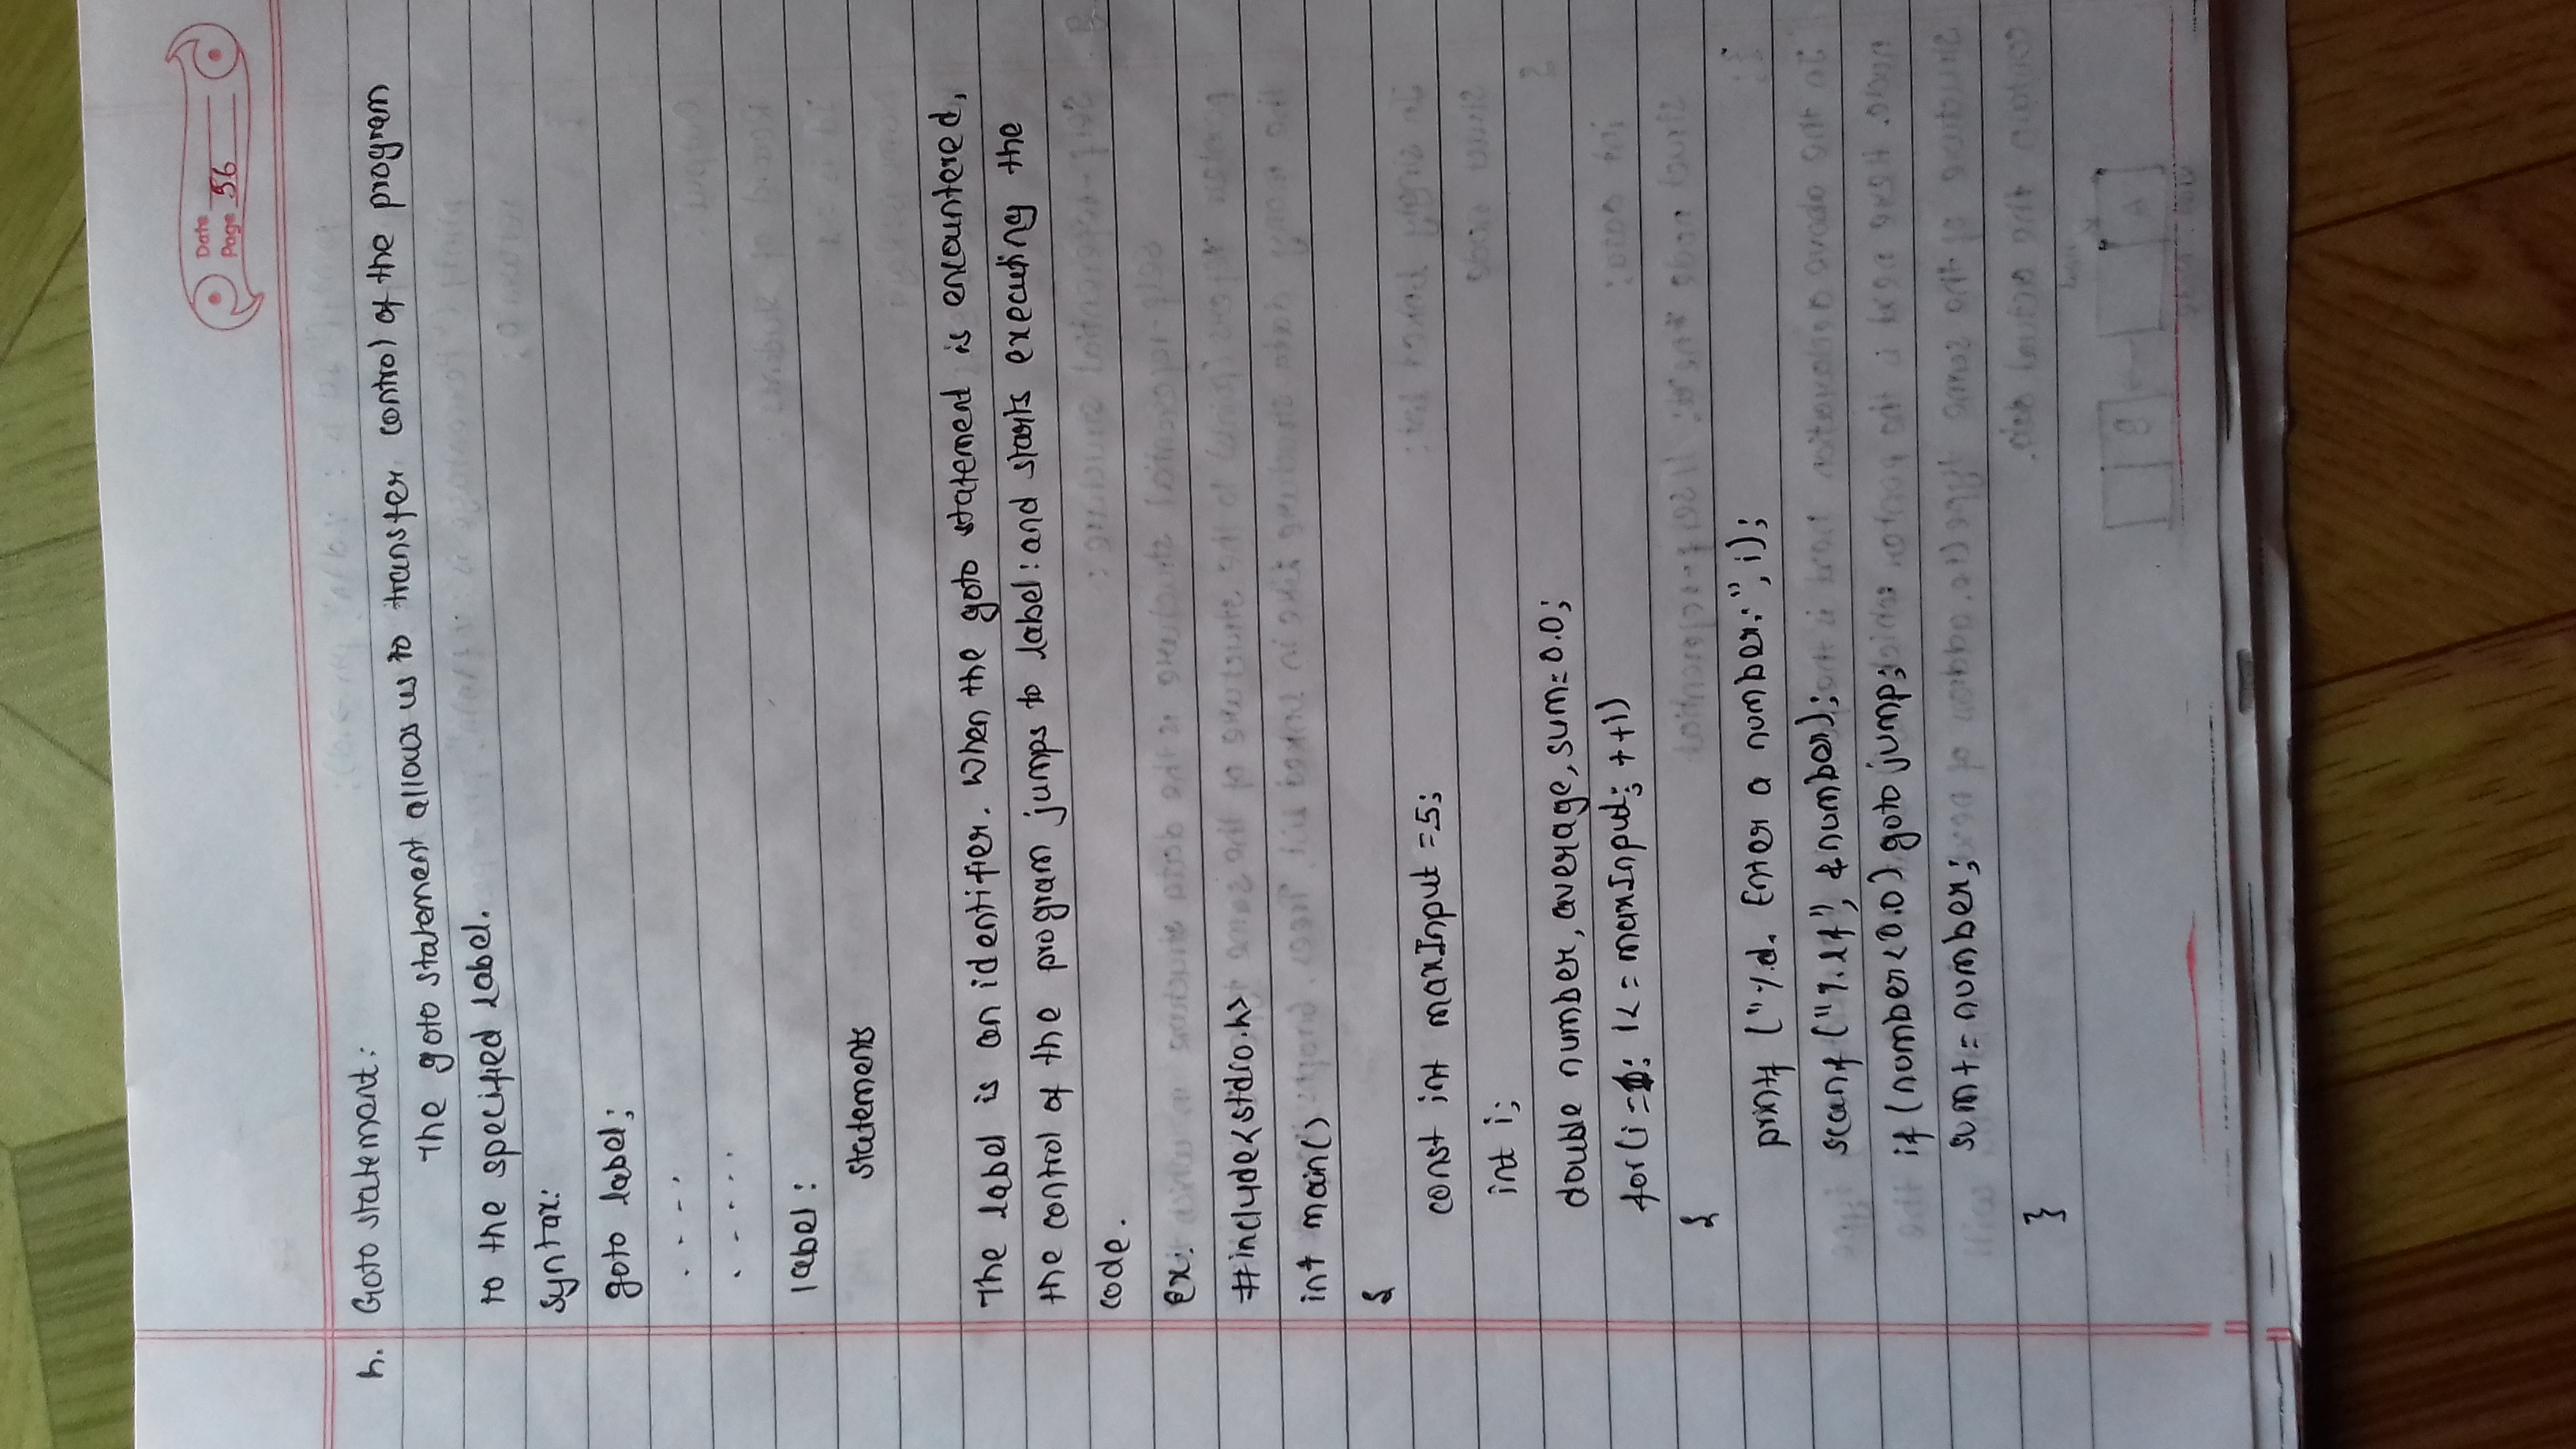 Date
Page 56
h. Goto statement:
The goto statement allows us to transfer control of the program
to the specified label.
syntax:
goto label;
. . . .
. . . . .
label :
statements
The label is an identifier. When the goto statement is encountered,
the control of the program jumps to label: and starts executing the
code.
ex:
#include<stdio.h>
int main()
{
const int maxInput =5;
int i;
double number, average, sum=0.0;
for(i=1; i<=maxInput; ++i)
{
printf ("%d. Enter a number:", i);
scanf ("%lf", &number);
if (number<0.0) goto jump;
sum+= number;
}